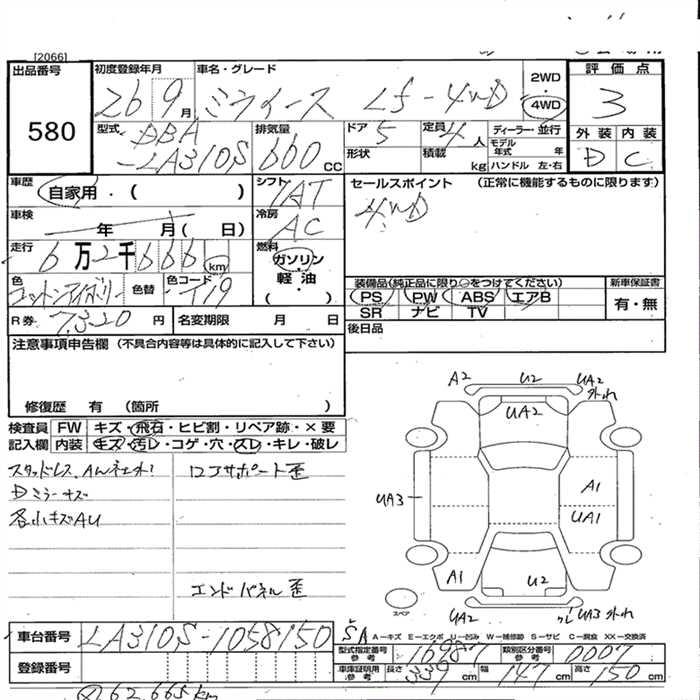 [2066]
出品番号 580
初度登録年月 26 9月
車名・グレード ミライース Lf-4WD
2WD 4WD
評価点 3
外装 D 内装 C
型式 DBA-LA310S
排気量 660 CC
ドア 5
形状
定員 4人
積載 kg
ディーラー・並行
モデル年式 年
ハンドル 左・右
車歴 自家用・( )
シフト IAT
セールスポイント (正常に機能するものに限ります)
4WD
車検 年 月( 日)
冷房 AC
走行 6万2千666km
燃料 ガソリン・軽油 ( )
色 コットンアイボリー 色替 色コード T19
装備品(純正品に限り○をつけてください)
PS PW ABS エアB
SR ナビ TV
新車保証書 有・無
R券 7320円 名変期限 月 日
後日品
注意事項申告欄 (不具合内容等は具体的に記入して下さい)
修復歴 有 (箇所 )
検査員記入欄
FW キズ・飛石・ヒビ割・リペア跡・×要
内装 キズ・汚レ・コゲ・穴・スレ・キレ・破レ
Dミラーキズ
各小キズAU
コアサポート歪
エンドパネル歪
A2 U2 UA2 外れ
UA2
UA3
A1
UA1
A1 U2
UA2 UA3 外れ
スペア
A-キズ E-エクボ U-凹み W-補修跡 S-サビ C-腐食 XX-交換済
車台番号 LA310S-1058150
登録番号
型式指定番号 参考 16987 類別区分番号 参考 0007
車庫証明用 参考 長さ 339cm 幅 147cm 高さ 150cm
62,665km